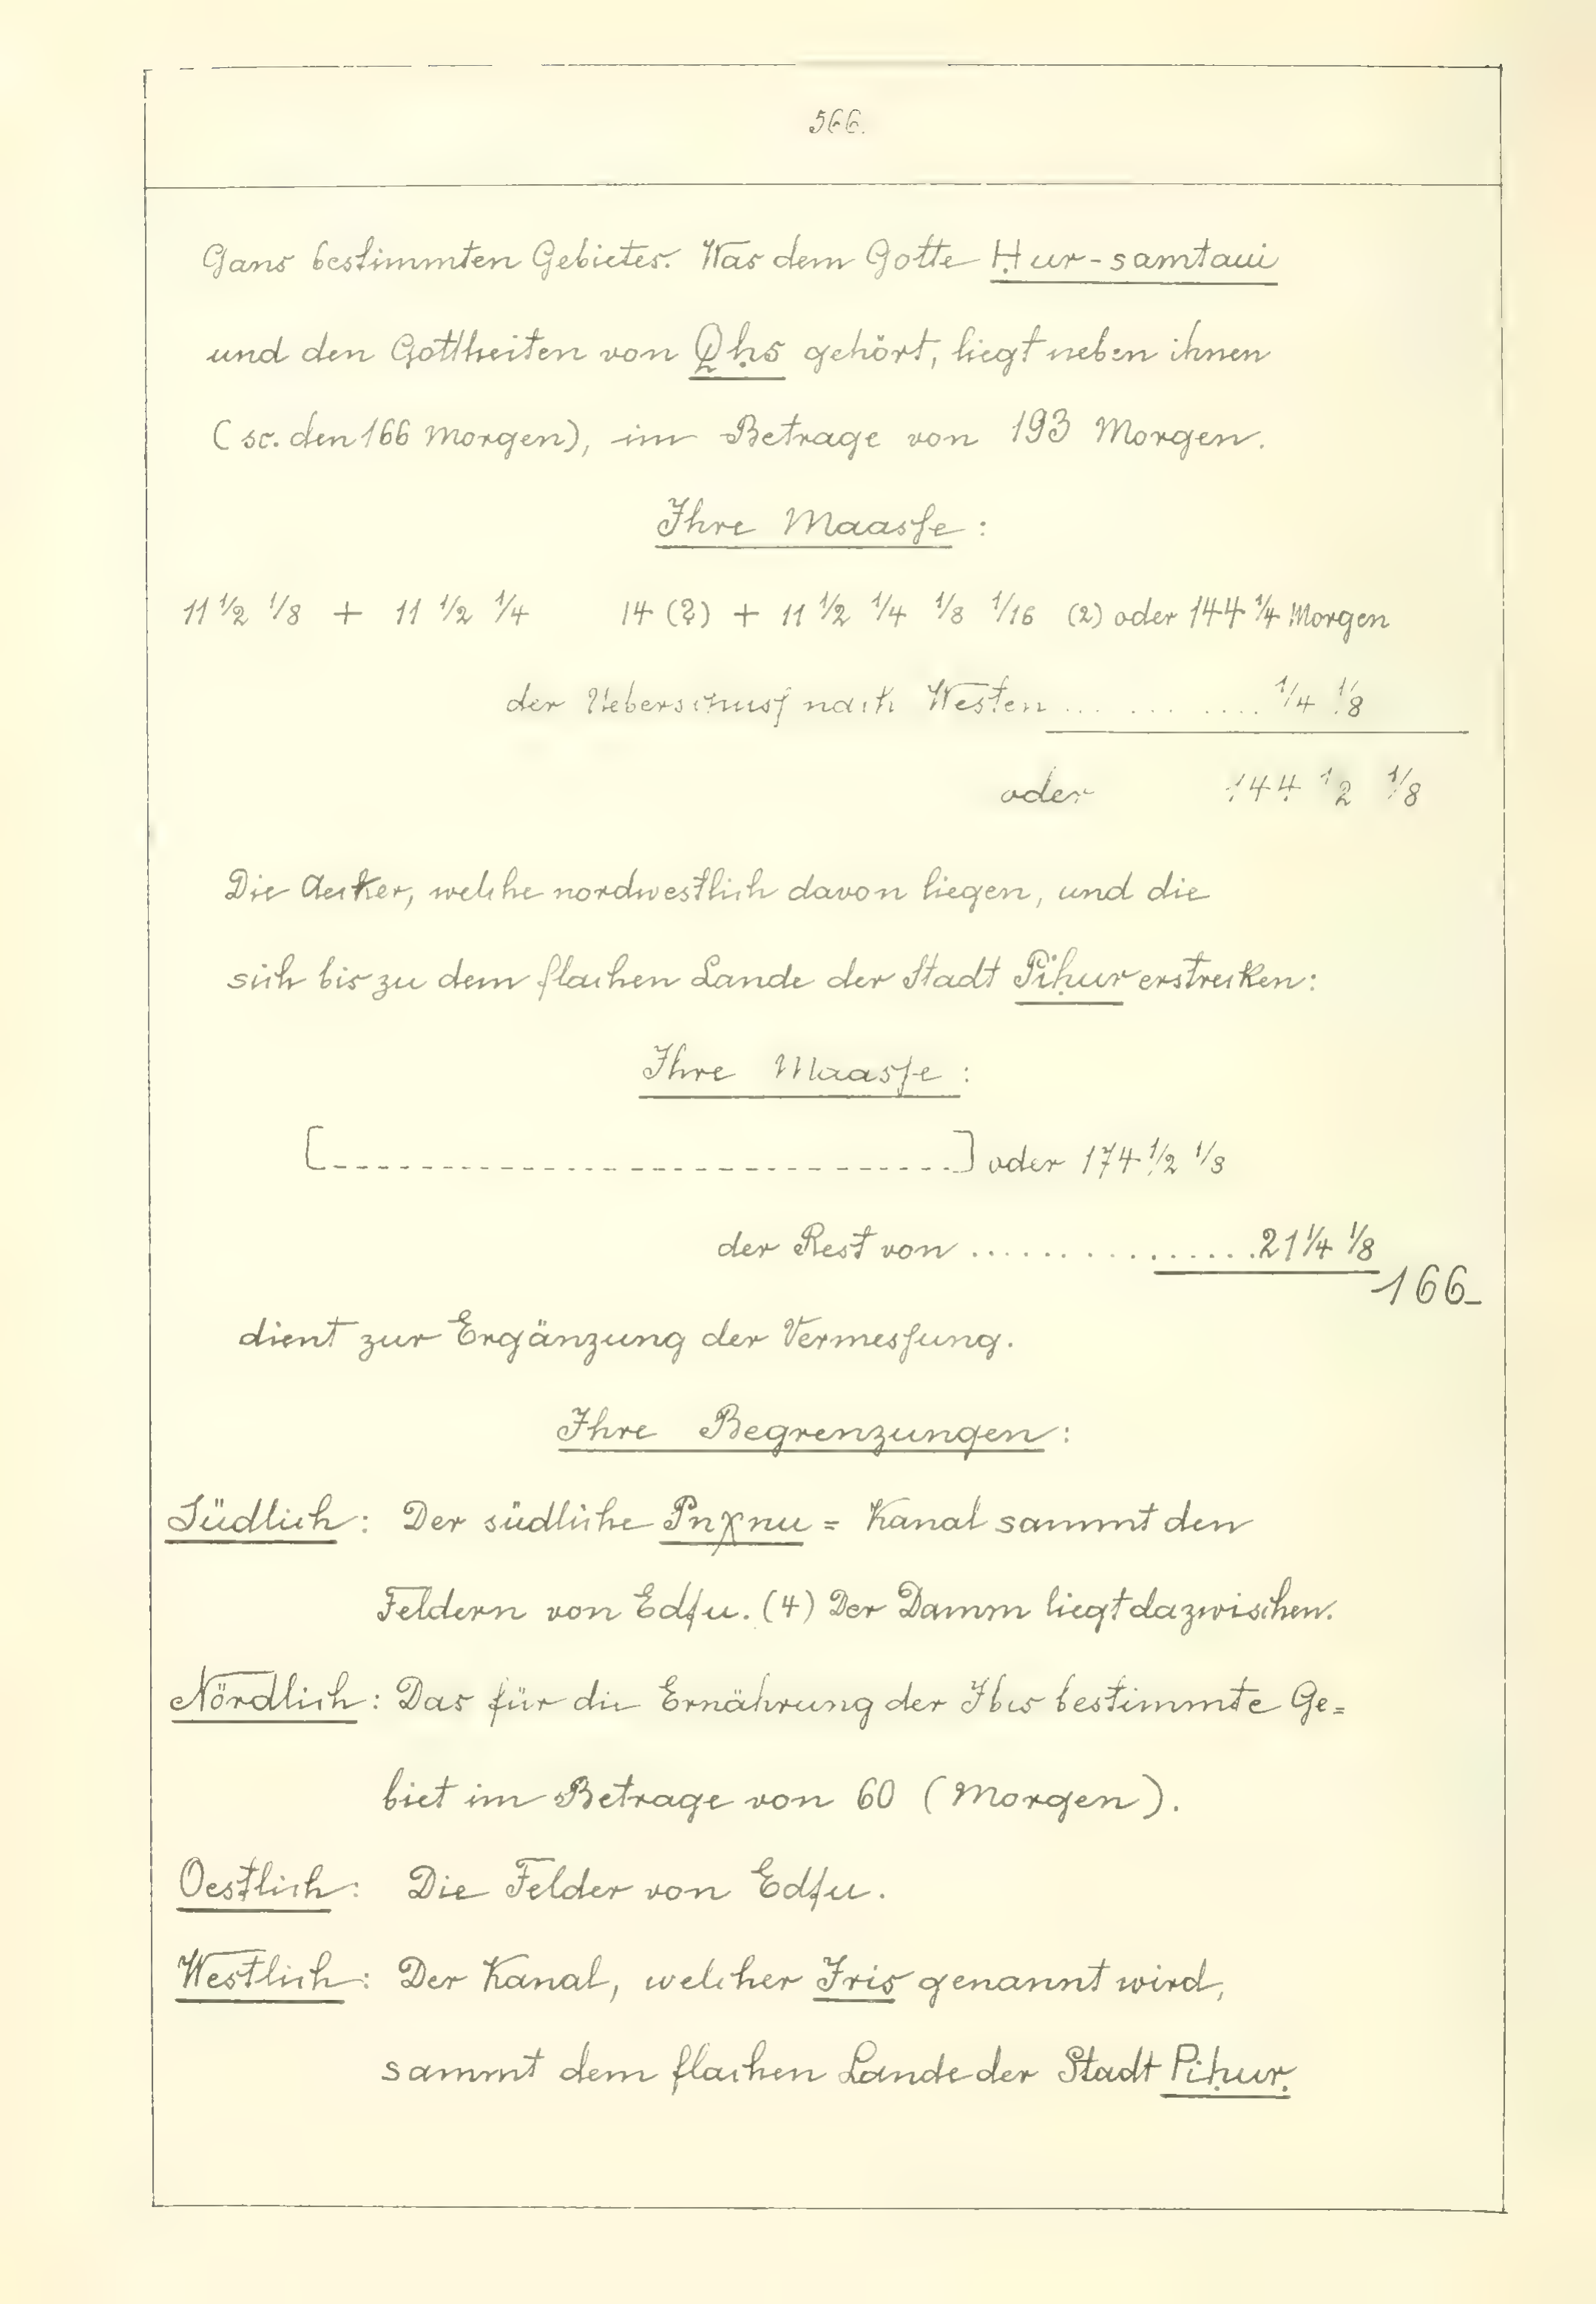 566.
Gans bestimmten Gebietes. Was dem Gotte Ḥur-samtaui
und den Gottheiten von Qḥs gehört, liegt neben ihnen
(sc. den 166 Morgen), im Betrage von 193 Morgen.
Ihre Maasse:
11 1/2 1/8 + 11 1/2 1/4 14 (?) + 11 1/2 1/4 1/8 1/16 (2) oder 144 1/4 Morgen
der Ueberschuss nach Westen ... ... .... 1/4 1/8
oder 144 1/2 1/8
Die Aecker, welche nordwestlich davon liegen, und die
sich bis zu dem flachen Lande der Stadt Piḥur erstrecken:
Ihre Maasse:
[------------------------------] oder 174 1/2 1/8
der Rest von ................ 21 1/4 1/8
166-
dient zur Ergänzung der Vermessung.
Ihre Begrenzungen:
Südlich: Der südliche Pnχnu = Kanal sammt den
Feldern von Edfu. (4) Der Damm liegt dazwischen.
Nördlich: Das für die Ernährung der Ibis bestimmte Ge=
biet im Betrage von 60 (Morgen).
Oestlich: Die Felder von Edfu.
Westlich: Der Kanal, welcher Iris genannt wird,
sammt dem flachen Lande der Stadt Piḥur.